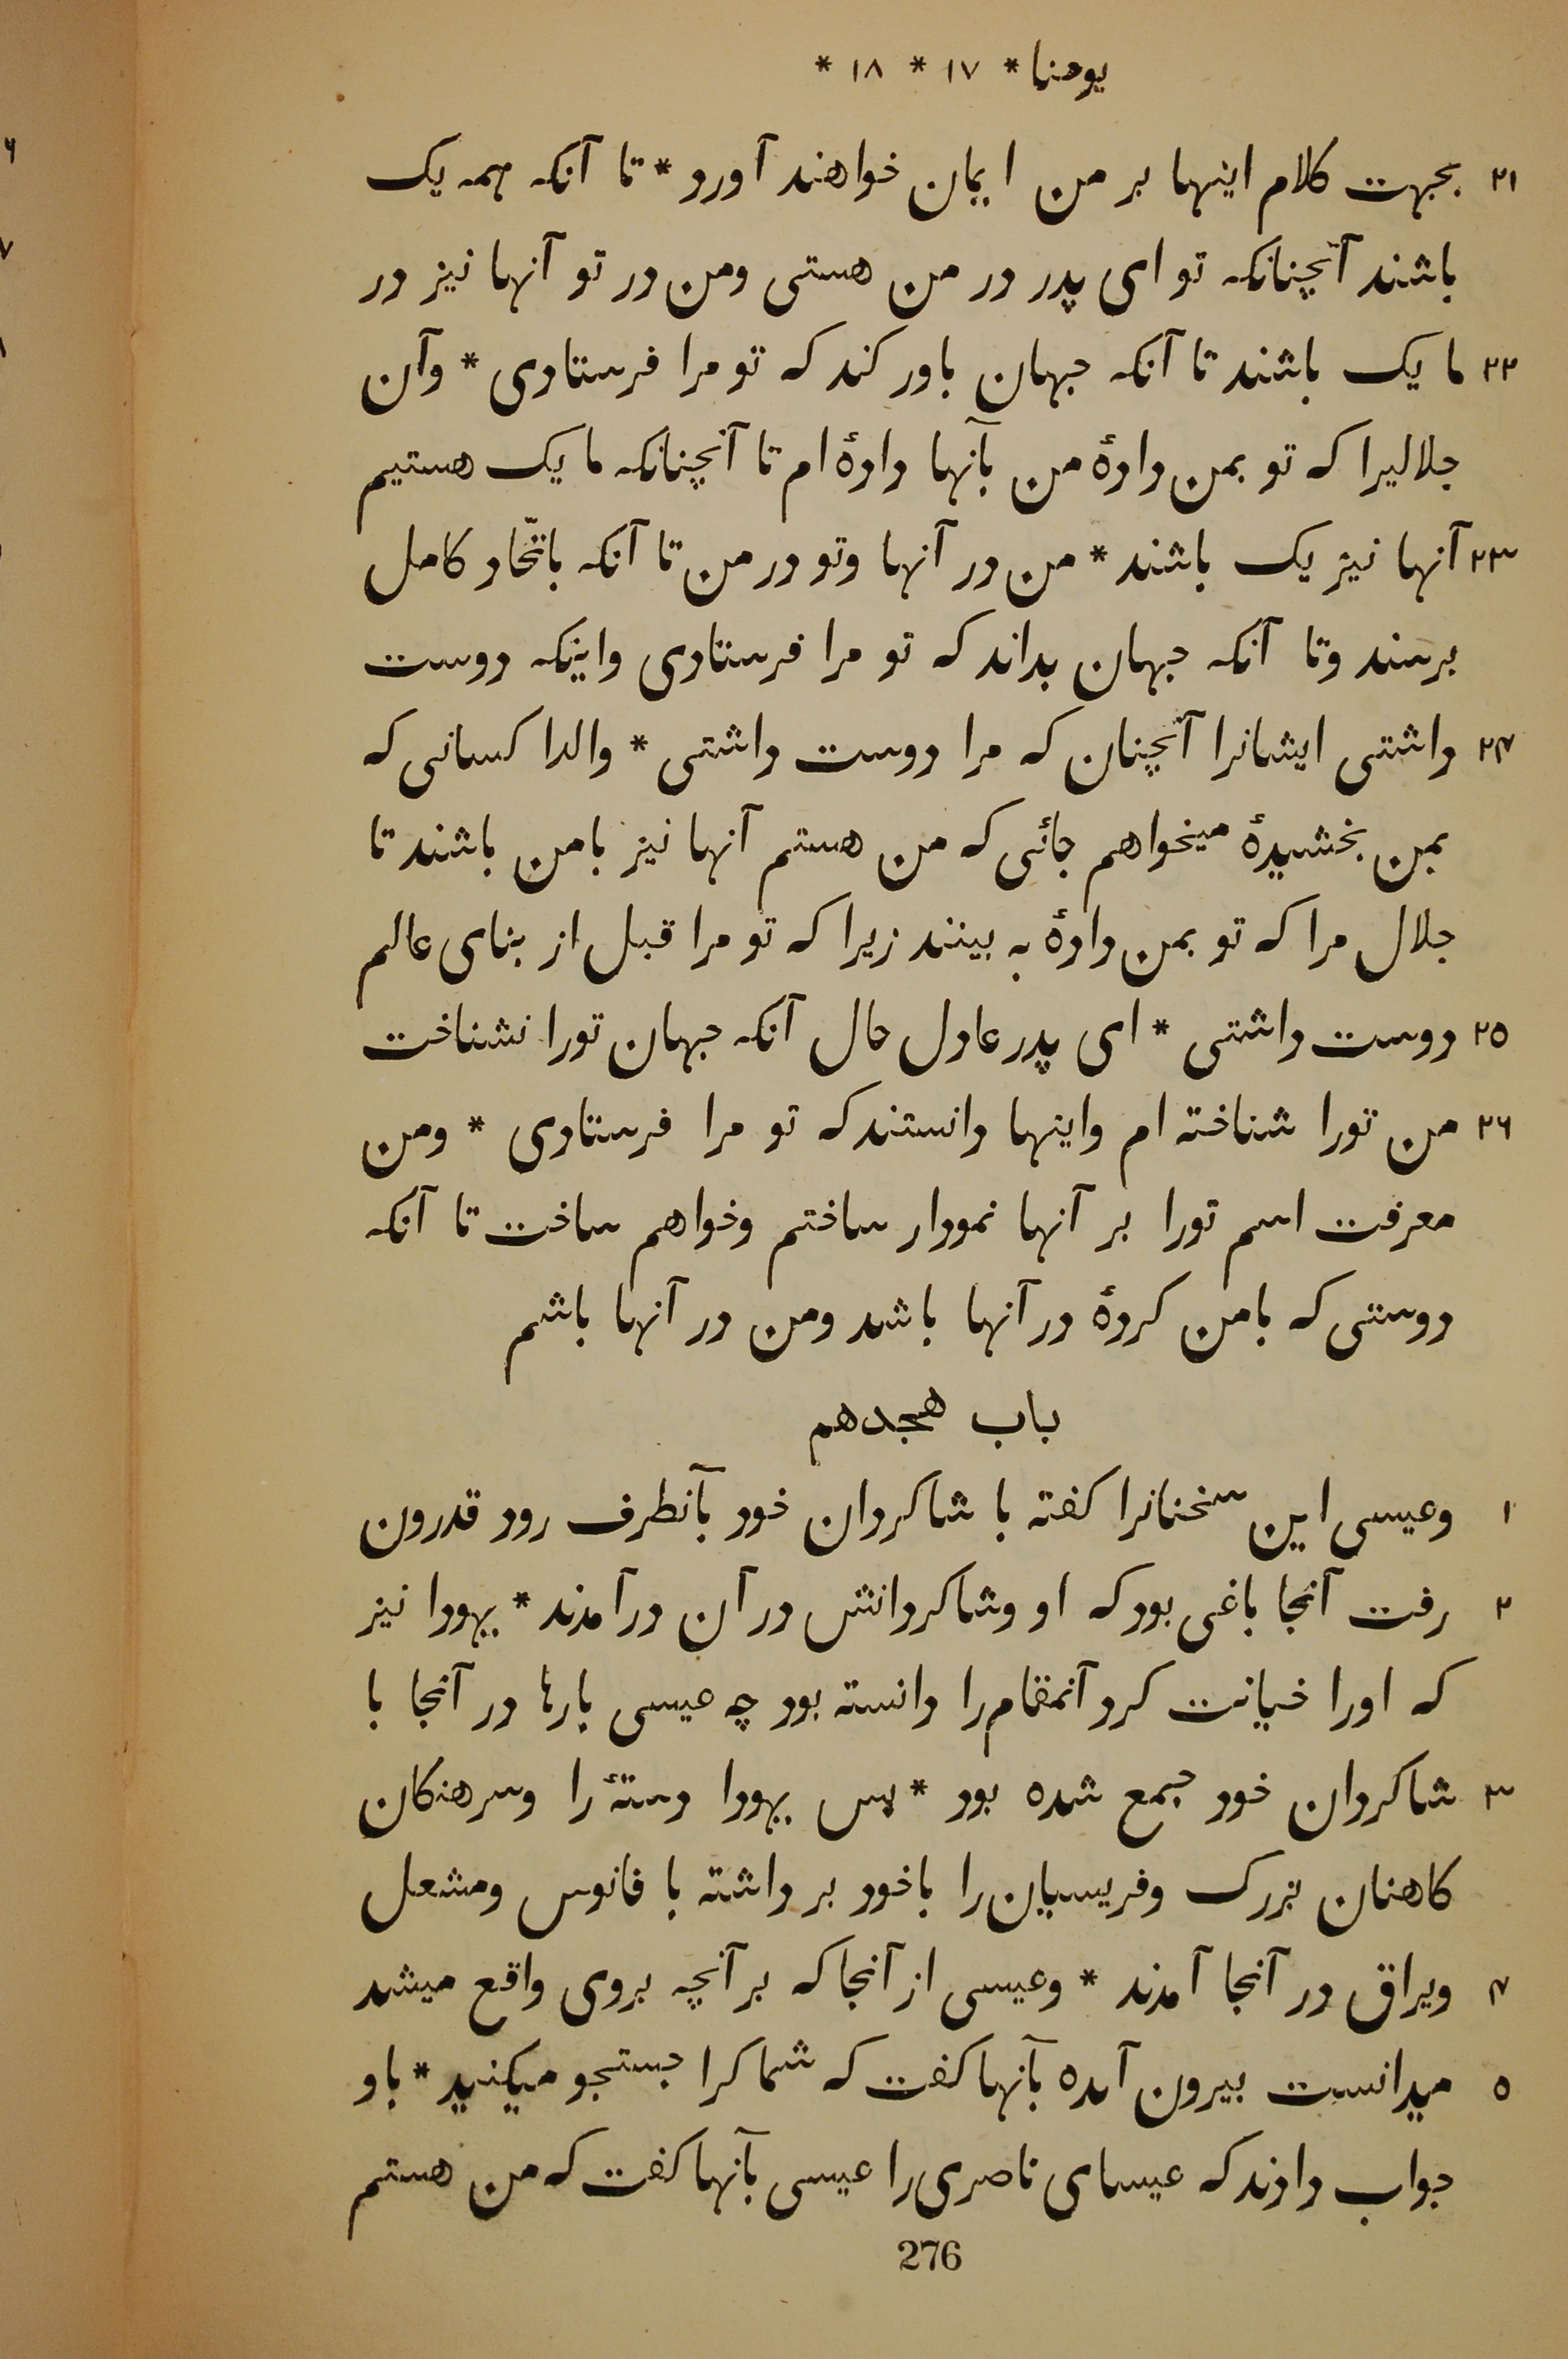 یوحنا * ۱۷ * ۱۸ *
۲۱ بجهت کلام اینها بر من ایمان خواهند آورد * تا آنکه همه یک
باشند آنچنانکه تو ای پدر در من هستی ومن در تو آنها نیز در
۲۲ ما یک باشند تا آنکه جهان باور کند که تو مرا فرستادی * وآن
جلالیرا که تو بمن دادهٔ من بآنها دادهٔ ام تا آنچنانکه ما یک هستیم
۲۳ آنها نیز یک باشند * من در آنها وتو در من تا آنکه باتّحاد کامل
برسند وتا آنکه جهان بداند که تو مرا فرستادی واینکه دوست
۲۴ داشتی ایشانرا آنچنان که مرا دوست داشتی * والدا کسانی که
بمن بخشیدهٔ میخواهم جائی که من هستم آنها نیز بامن باشند تا
جلال مرا که تو بمن دادهٔ به بینند زیرا که تو مرا قبل از بنای عالم
۲۵ دوست داشتی * ای پدر عادل حال آنکه جهان تورا نشناخت
۲۶ من تورا شناخته ام واینها دانستند که تو مرا فرستادی * ومن
معرفت اسم تورا بر آنها نمودار ساختم وخواهم ساخت تا آنکه
دوستی که بامن کردهٔ در آنها باشد ومن در آنها باشم
باب هجدهم
۱ وعیسی این سخنانرا کفته با شاکردان خود بآنطرف رود قدرون
۲ رفت آنجا باغی بود که او وشاکردانش در آن درآمدند * یهودا نیز
که اورا خیانت کرد آنمقام را دانسته بود چه عیسی بارها در آنجا با
۳ شاکردان خود جمع شده بود * پس یهودا دستهٔ را وسرهنکان
کاهنان بزرک وفریسیان را باخود بر داشته با فانوس ومشعل
۴ ویراق در آنجا آمدند * وعیسی از آنجا که بر آنچه بروی واقع میشد
۵ میدانست بیرون آمده بآنها کفت که شما کرا جستجو میکنید * باو
جواب دادند که عیسای ناصری را عیسی بآنها کفت که من هستم
276